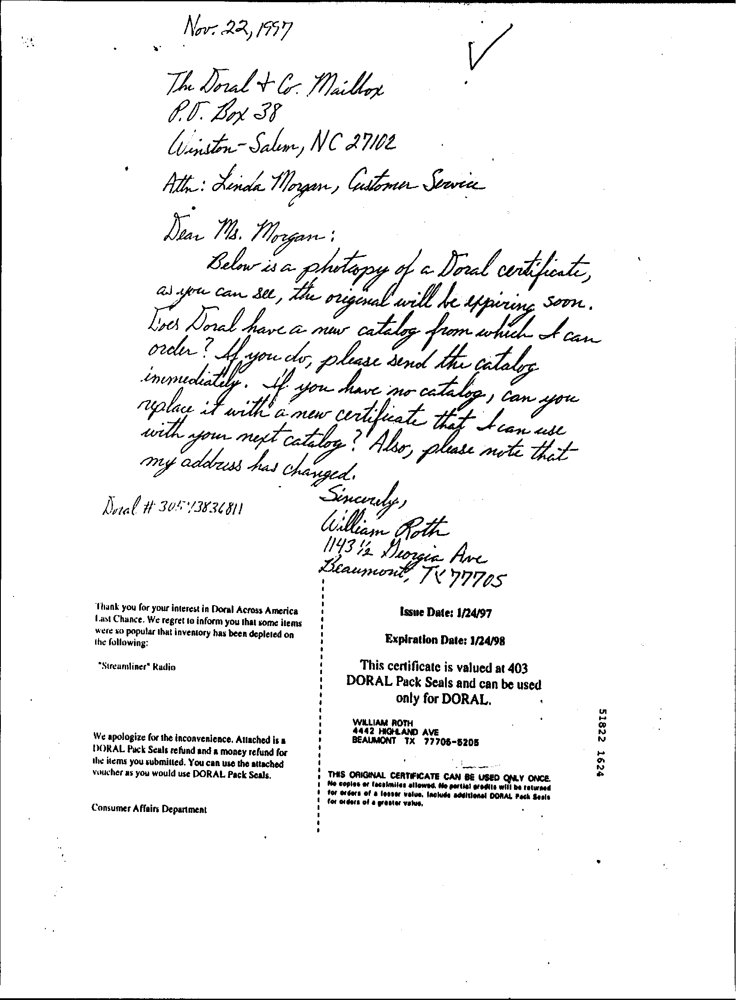 Nov. 22, 1997
The Doral & Co. Mailbox
P.O. Box 38
Winston-Salem, NC 27102
Attn: Linda Morgan, Customer Service
Dear Ms. Morgan:
Below is a photocopy of a Doral certificate,
as you can see, the original will be expiring soon.
Does Doral have a new catalog from which I can
order? If you do, please send the catalog
immediately. If you have no catalog, can you
replace it with a new certificate that I can use
with your next catalog? Also, please note that
my address has changed.
Sincerely,
Doral #
William Roth
1143 ½ Georgia Ave
Beaumont, TX 77705
Thank you for your interest in Doral Across America
Last Chance. We regret to inform you that some items
were so popular that inventory has been depleted on
the following:
"Streamliner" Radio
We apologize for the inconvenience. Attached is a
DORAL Pack Seals refund and a money refund for
the items you submitted. You can use the attached
voucher as you would use DORAL Pack Seals.
Consumer Affairs Department
Issue Date: 1/24/97
Expiration Date: 1/24/98
This certificate is valued at 403
DORAL Pack Seals and can be used
only for DORAL.
WILLIAM ROTH
4442 HIGHLAND AVE
BEAUMONT TX 77705-5205
THIS ORIGINAL CERTIFICATE CAN BE USED ONLY ONCE.
No copies or facsimiles allowed. No partial credits will be returned
for orders of a lesser value. Include additional DORAL Pack Seals
for orders of a greater value.
51822 1624